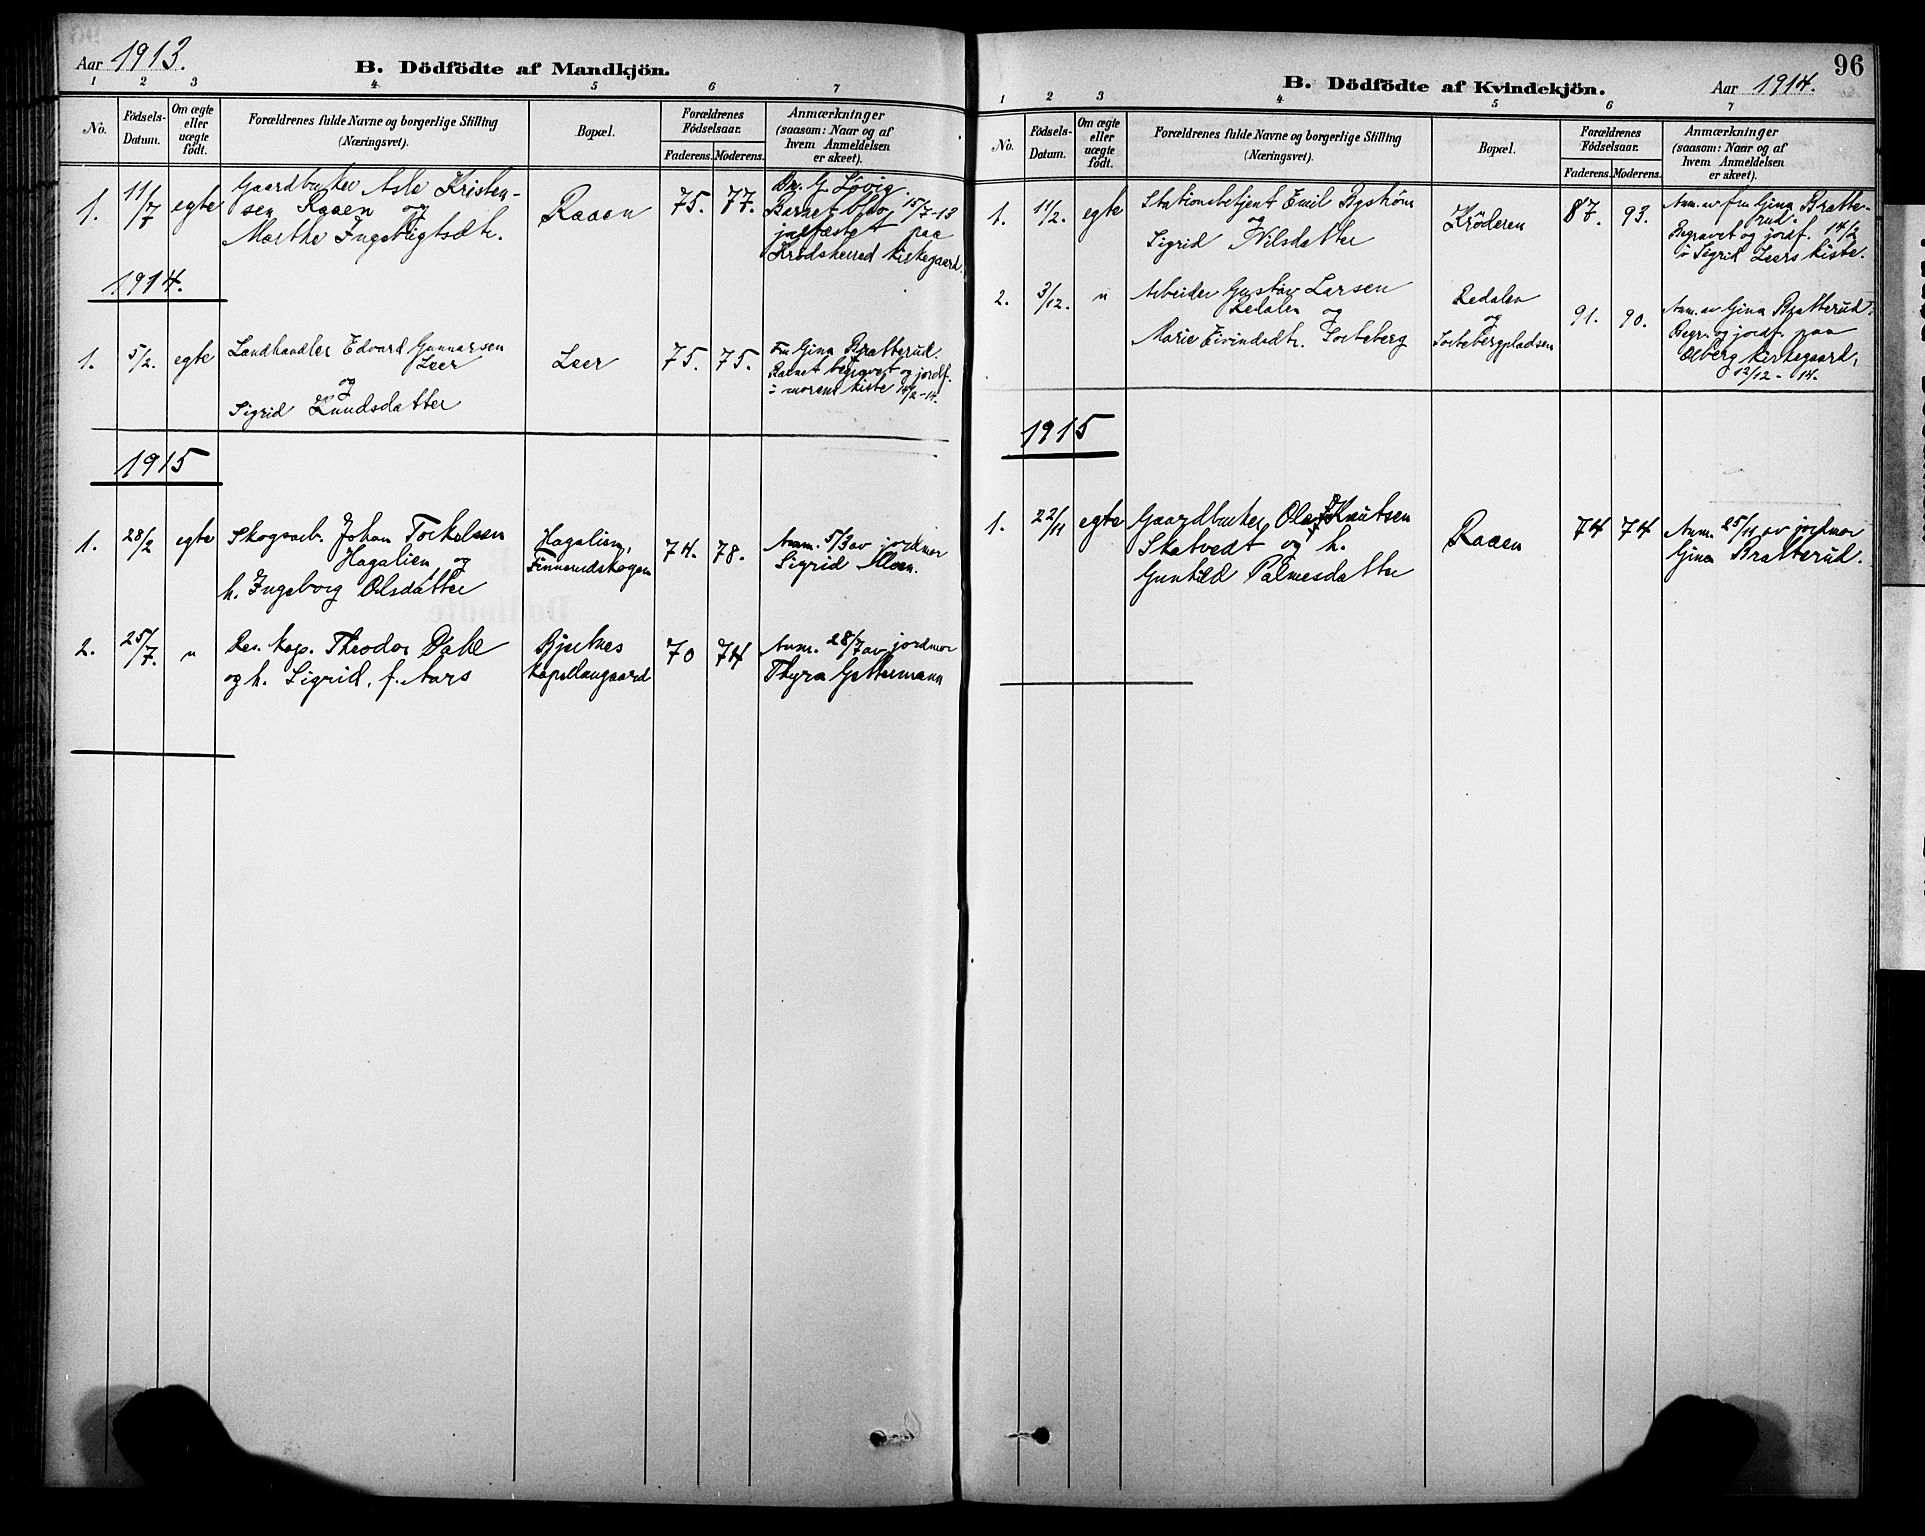 Aar 1913.
B. Dödfödte af Mandkjön.
1 2 3 4 5 6 7
No.
Födsels-
Datum.
Om ægte
eller
uægte
födt.
Forældrenes fulde Navne og borgerlige Stilling
(Næringsvei).
Bopæl.
Forældrenes
Födselsaar.
Faderens. Moderens.
Anmærkninger
(saasom: Naar og af
hvem Anmeldelsen
er skeet).
1. 11/7 egte
Gaardbruker Asle Kristen-
sen Raaen og
Marthe Ingebrigtsdtr.
Raaen
75. 77.
Dr. G. Lövig.
Barnet 15/7-13
jordfæstet paa
Krödsherred kirkegaard.
1914.
1. 5/2. egte
Landhandler Edvard Gunnarsen
Leer
og
Sigrid Knudsdatter
Leer
75. 75.
Fru Gina Bratterud.
Barnet begravet og jordf.
i morens kiste 14/2-14.
1915
1. 28/2 egte
Skogsarb. Johan Torkelsen
Hagalien og
h. Ingeborg Olsdatter
Hagalien,
Finnerudskogen
74. 78.
Anm. 5/3 av jordmor
Sigrid Moen.
2. 25/7. "
Res. kap. Theodor Dahl
og h. Sigrid, f. Aars
Bjertnes
kapellangaard
70 74
Anm. 28/7 av jordmor
Thyra Gettermann
96
B. Dödfödte af Kvindekjön.
Aar 1914.
1 2 3 4 5 6 7
No.
Födsels-
Datum.
Om ægte
eller
uægte
födt.
Forældrenes fulde Navne og borgerlige Stilling
(Næringsvei).
Bopæl.
Forældrenes
Födselsaar.
Faderens. Moderens.
Anmærkninger
(saasom: Naar og af
hvem Anmeldelsen
er skeet).
1. 11/2. egte
Stationsbetjent Emil Byström
og
Sigrid Nilsdatter
Kröderen
87. 93.
Anm. av fru Gina Bratte-
rud.
Begravet og jordf. 14/2
i Sigrid Leers kiste.
2. 3/12. "
Arbeider Gustav Larsen
Redalen og
Marie Eivindsdtr. Sorteberg
Redalen
og
Sortebergpladsen
91. 90.
Anm. av Gina Bratterud.
Begr. og jordf. paa
Olberg kirkegaard,
12/12-14.
1915
1. 22/11 egte
Gaardbruker Ole Knutsen
Skatvedt og h.
Gunhild Palmesdatter
Raaen
74 74
Anm. 25/11 av jordmor
Gina Bratterud.